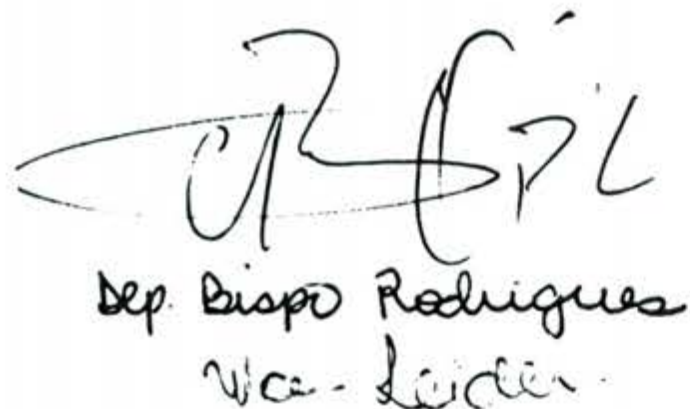 PL
Dep. Bispo Rodrigues
Vice-Líder